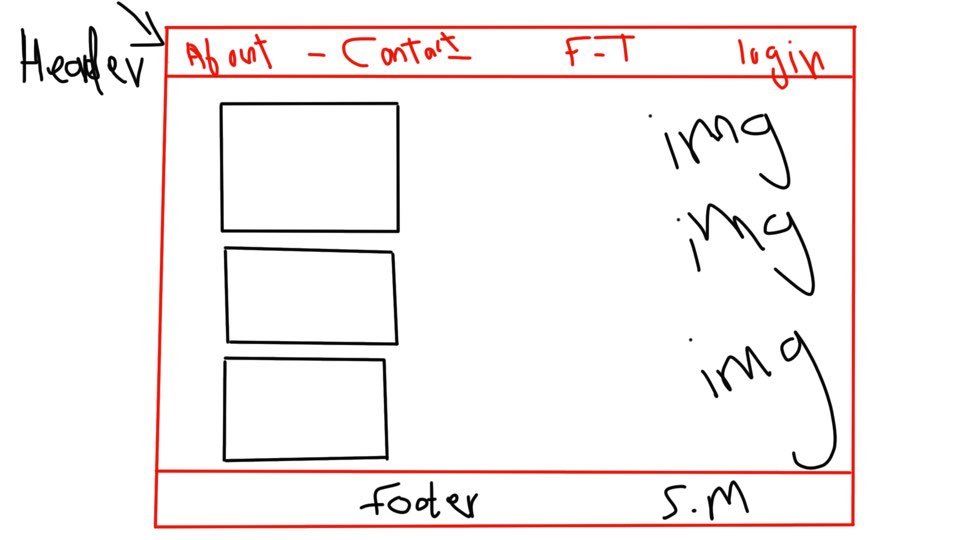 Header
About - Contact F-T login
img
img
img
footer S.M